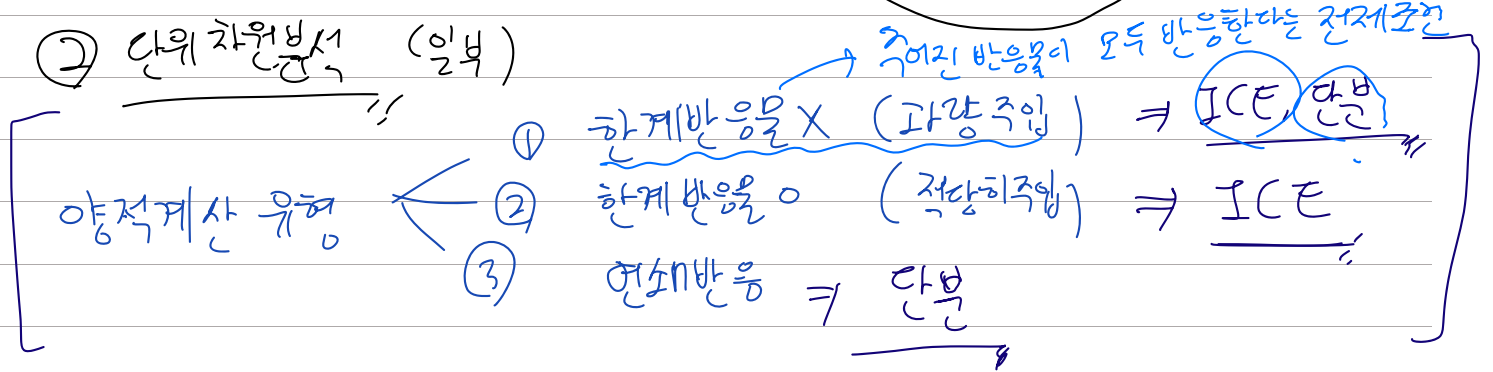 ② 단위차원분석 (일부)
→ 주어진 반응물이 모두 반응한다는 전제조건
① 한계반응물 X (과량주입) ⇒ ICE, 단분
양적계산 유형 ② 한계반응물 O (적당히주입) ⇒ ICE
③ 연쇄반응 ⇒ 단분